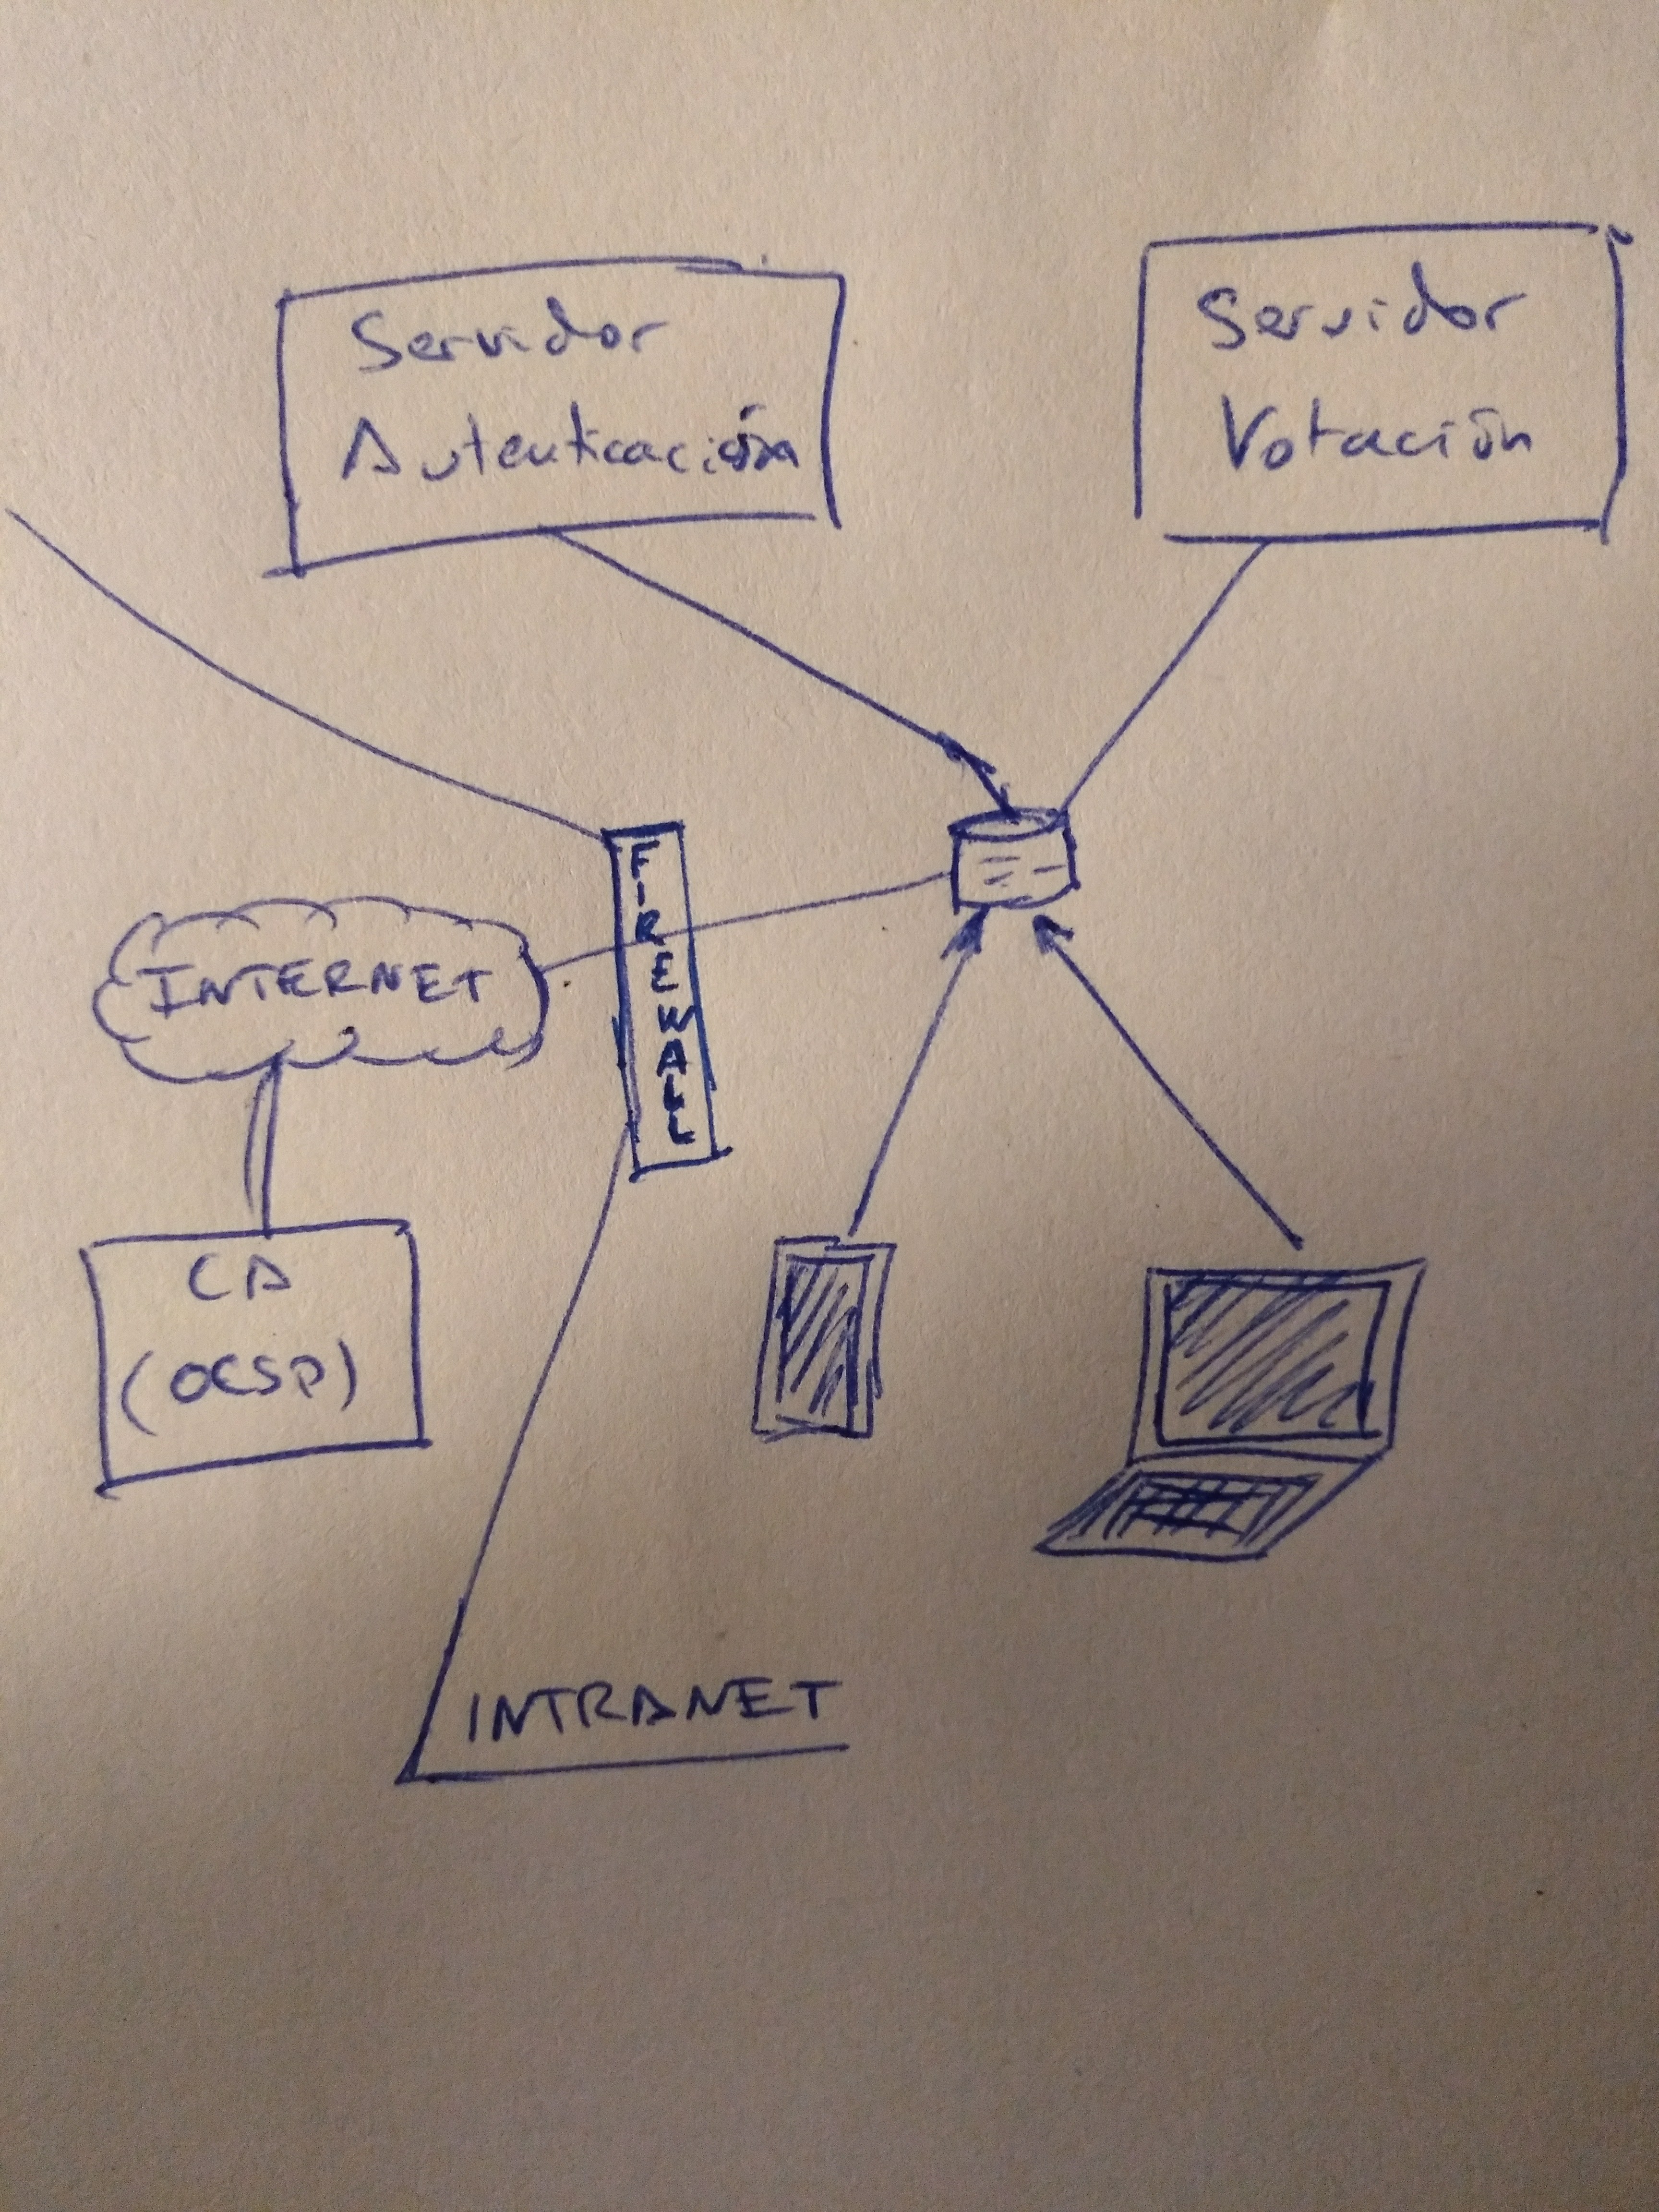 Servidor
Autenticación
Servidor
Votación
FIREWALL
INTERNET
CA
(OCSP)
INTRANET